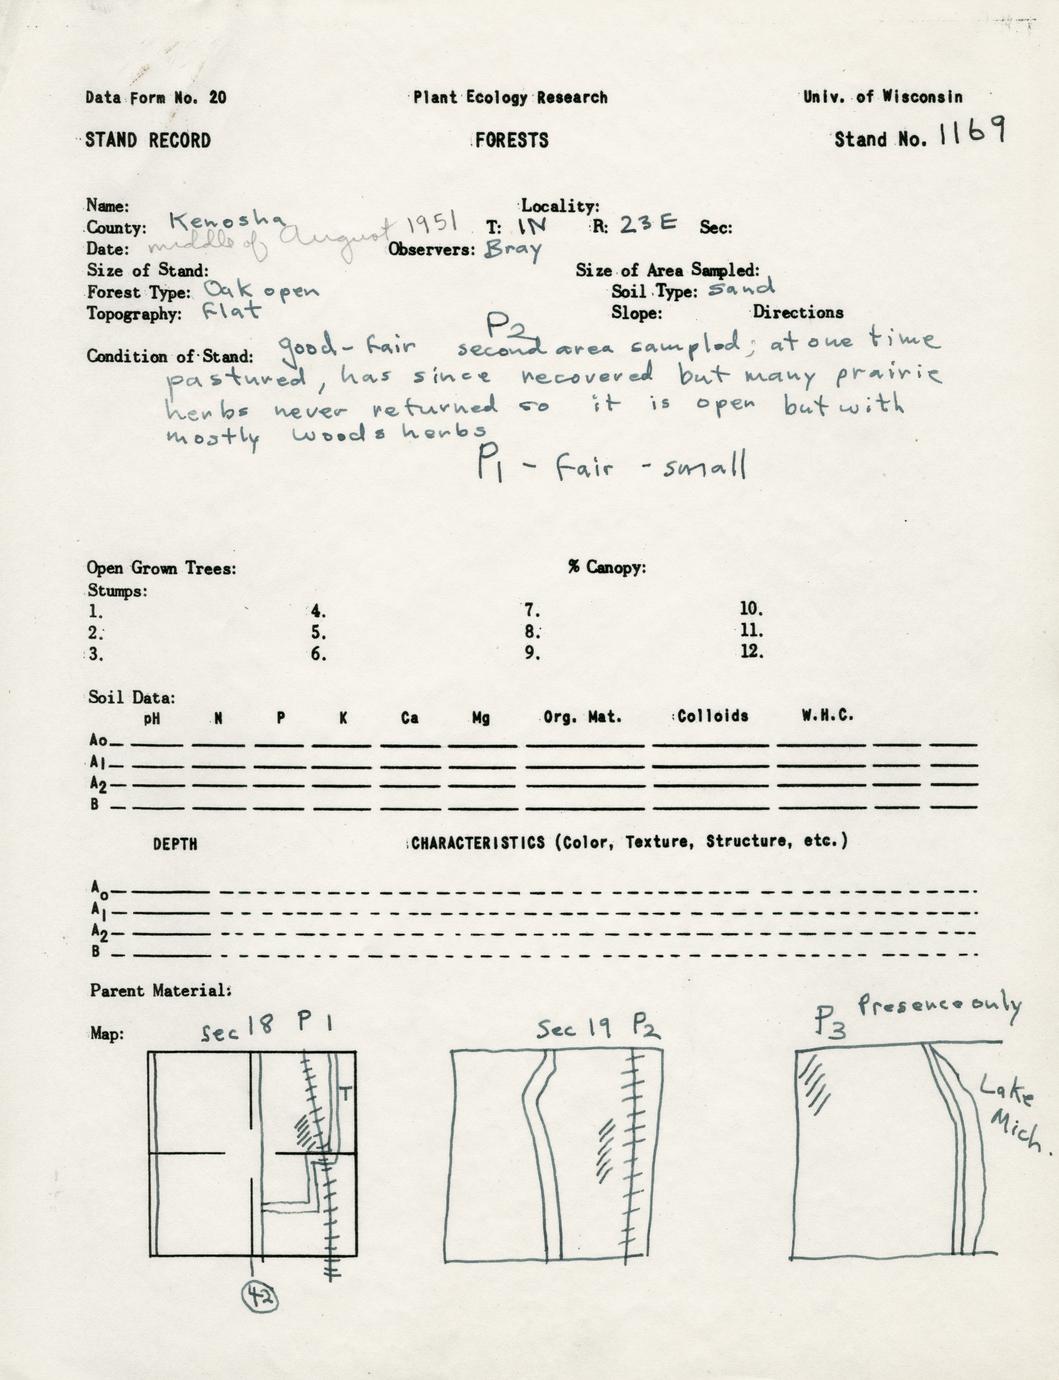 Data Form No. 20 Plant Ecology Research Univ. of Wisconsin
STAND RECORD FORESTS Stand No. 1169
Name: Locality:
County: Kenosha T: 1N R: 23E Sec:
Date: middle of August 1951 Observers: Bray
Size of Stand: Size of Area Sampled:
Forest Type: Oak open Soil Type: sand
Topography: flat Slope: Directions
P2
Condition of Stand: good-fair second area sampled; at one time
pastured, has since recovered but many prairie
herbs never returned so it is open but with
mostly woods herbs
P1 - fair - small
Open Grown Trees: % Canopy:
Stumps:
1. 4. 7. 10.
2. 5. 8. 11.
3. 6. 9. 12.
Soil Data:
pH N P K Ca Mg Org. Mat. Colloids W.H.C.
Ao
A1
A2
B
DEPTH CHARACTERISTICS (Color, Texture, Structure, etc.)
Ao
A1
A2
B
Parent Material:
Map: Sec 18 P1 Sec 19 P2 P3 Presence only
T
Lake
Mich.
42